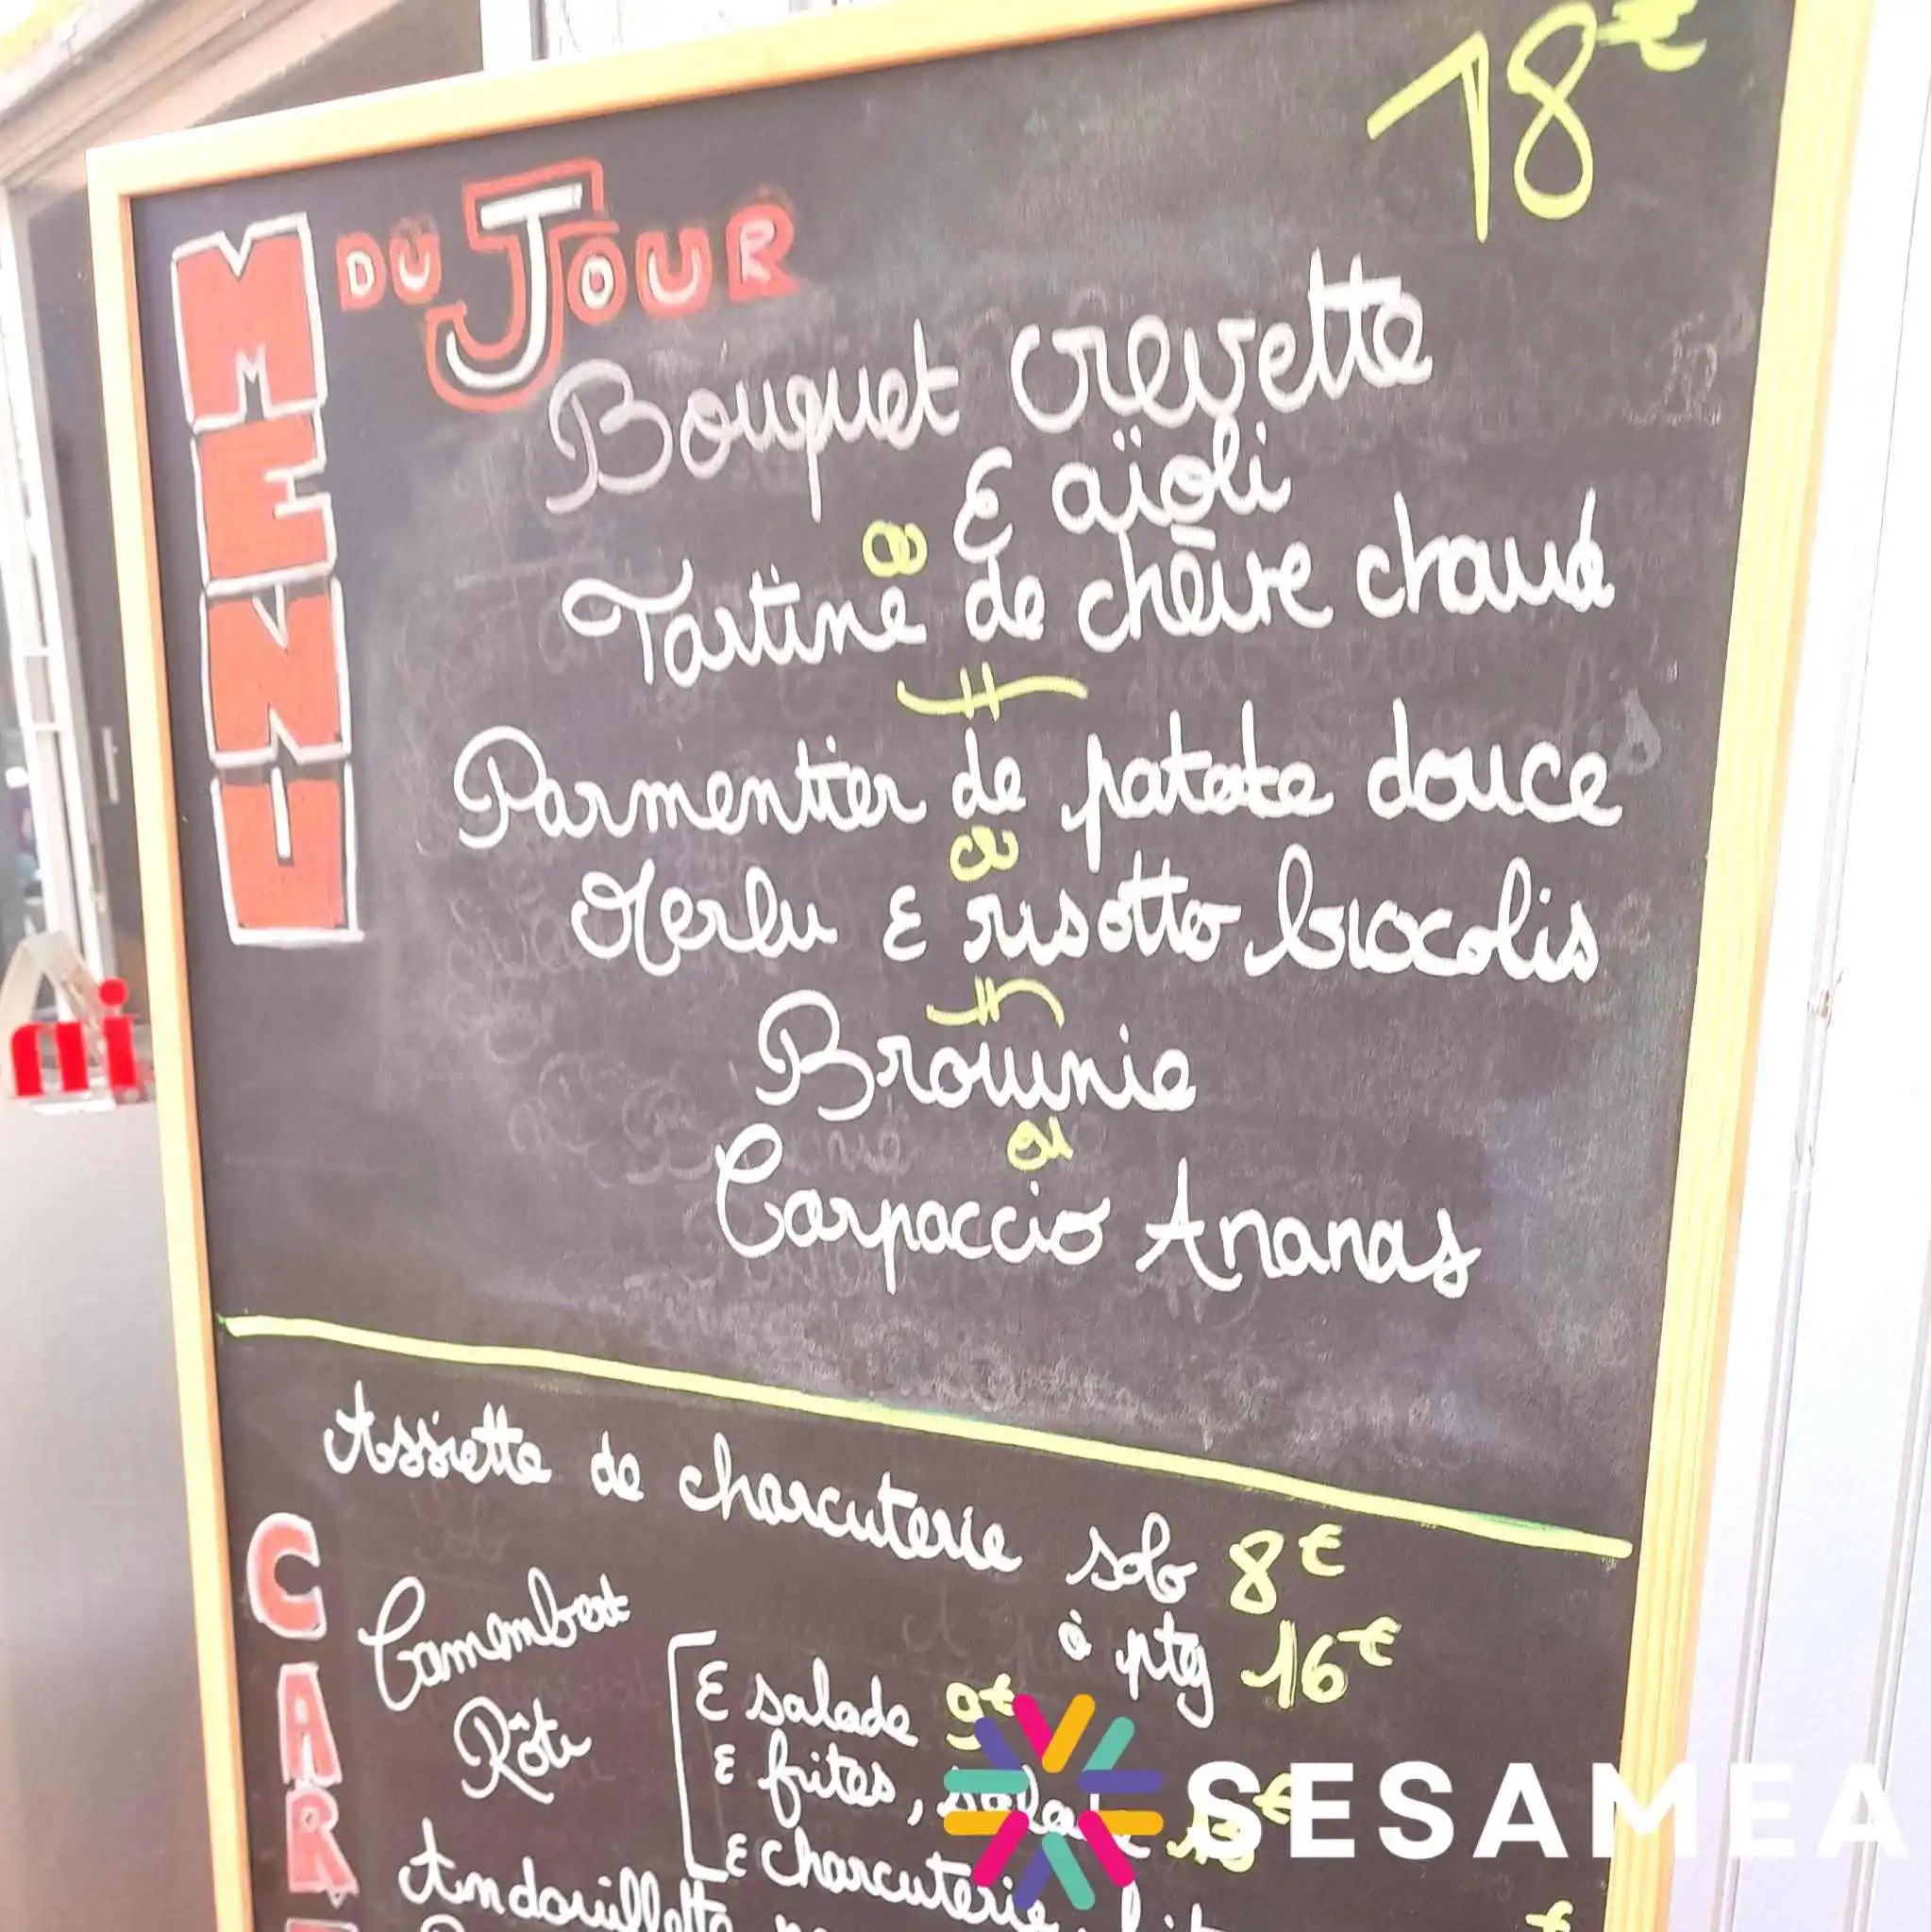 MENU DU JOUR
18€
Bouquet crevette
& aïoli
ou
Tartine de chèvre chaud
Parmentier de patate douce
ou
Merlu & risotto brocolis
Brownie
ou
Carpaccio Ananas
Assiette de charcuterie solo 8€
à ptg 16€
CAR
Camembert
Rôti
& salade 9€
& frites, salade
& charcuterie,
Andouillette
SESAMEA
ni